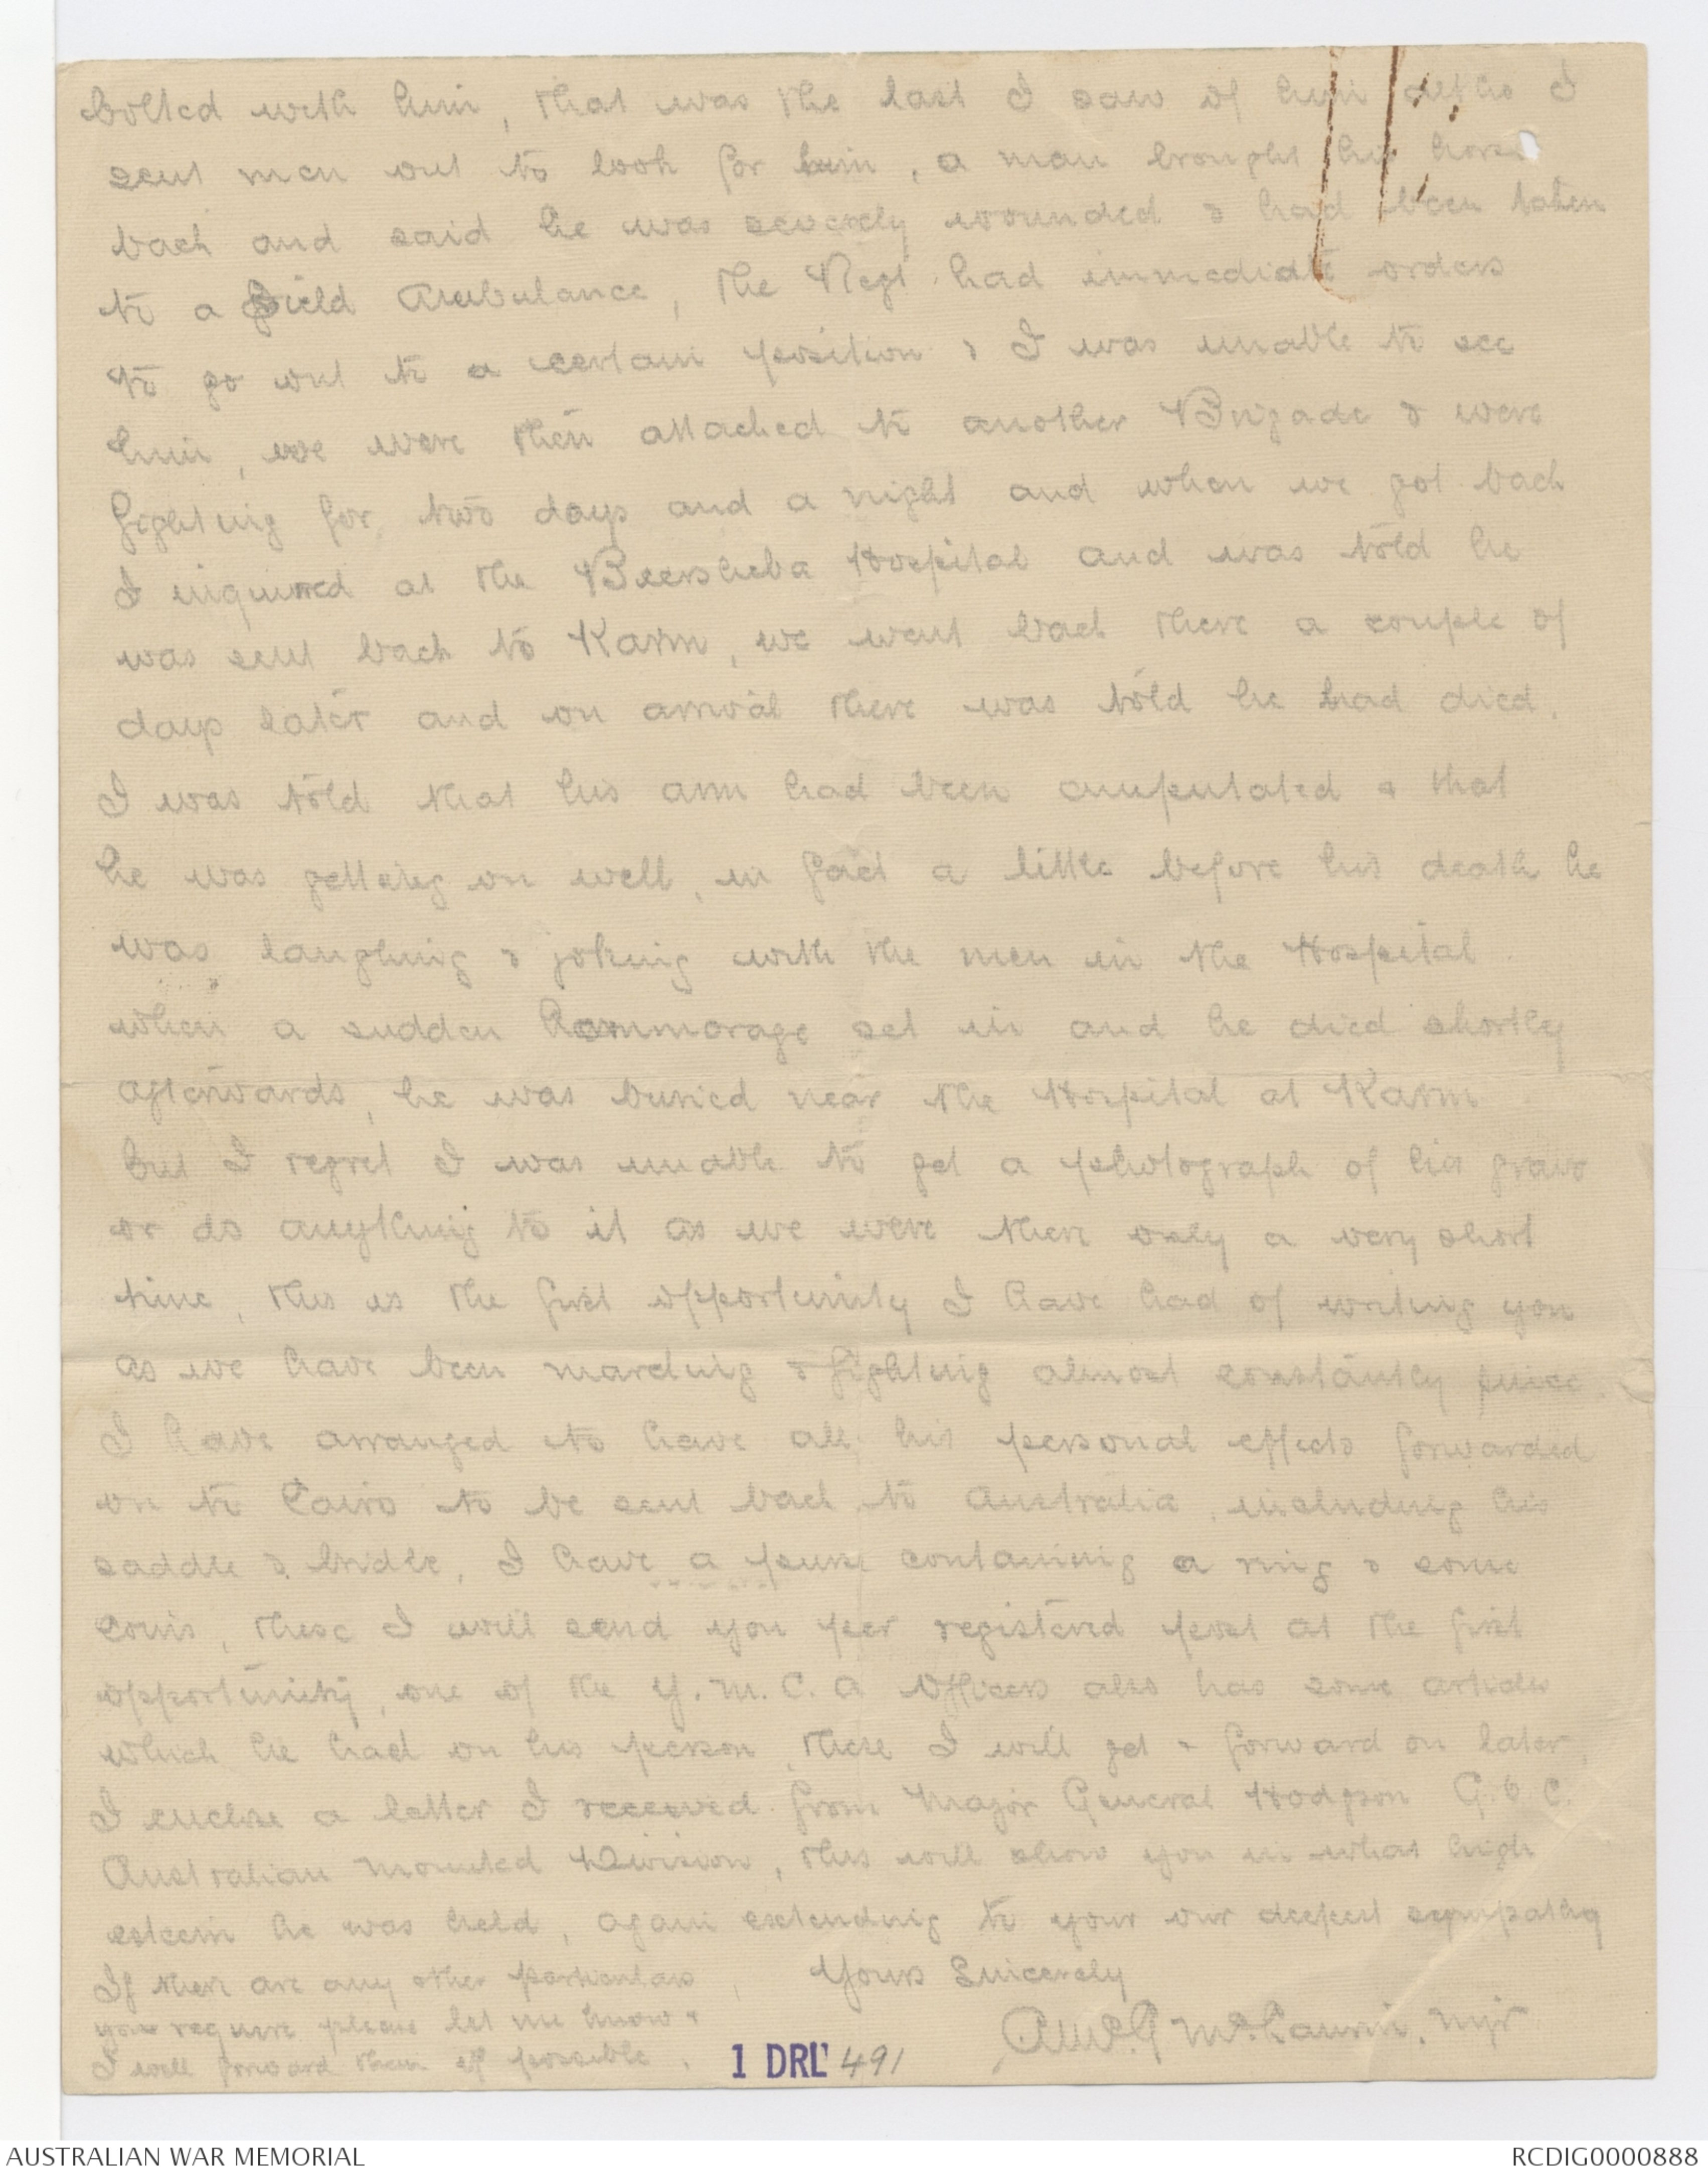 bolted with him, that was the last I saw of him altho I
sent men out to look for him, a man brought his horse
back and said he was severely wounded & had been taken
to a Field Ambulance, the Regt had immediate orders
to go out to a certain position & I was unable to see
him, we were then attached to another Brigade & were
fighting for two days and a night and when we got back
I inquired at the Beersheba Hospital and was told he
was sent back to Karm, we went back there a couple of
days later and on arrival there was told he had died.
I was told that his arm had been amputated & that
he was getting on well, in fact a little before his death he
was laughing & joking with the men in the Hospital
when a sudden haemmorage set in and he died shortly
afterwards, he was buried near the Hospital at Karm
but I regret I was unable to get a photograph of his grave
or do anything to it as we were there only a very short
time, this is the first opportunity I have had of writing you
as we have been marching & fighting almost constantly since.
I have arranged to have all his personal effects forwarded
on to Cairo to be sent back to Australia, including his
saddle & bridle, I have a purse containing a ring & some
coins, these I will send you per registered post at the first
opportunity, one of the Y.M.C.A Officers also has some articles
which he had on his person, these I will get & forward on later,
I enclose a letter I received from Major General Hodgson G.O.C.
Australian Mounted Division, this will show you in what high
esteem he was held, again extending to your our deepest sympathy
Yours Sincerely
McLaurin, Mjr
If there are any other particulars
you require please let me know &
I will forward them if possible.
1 DRL 491
AUSTRALIAN WAR MEMORIAL
RCDIG0000888